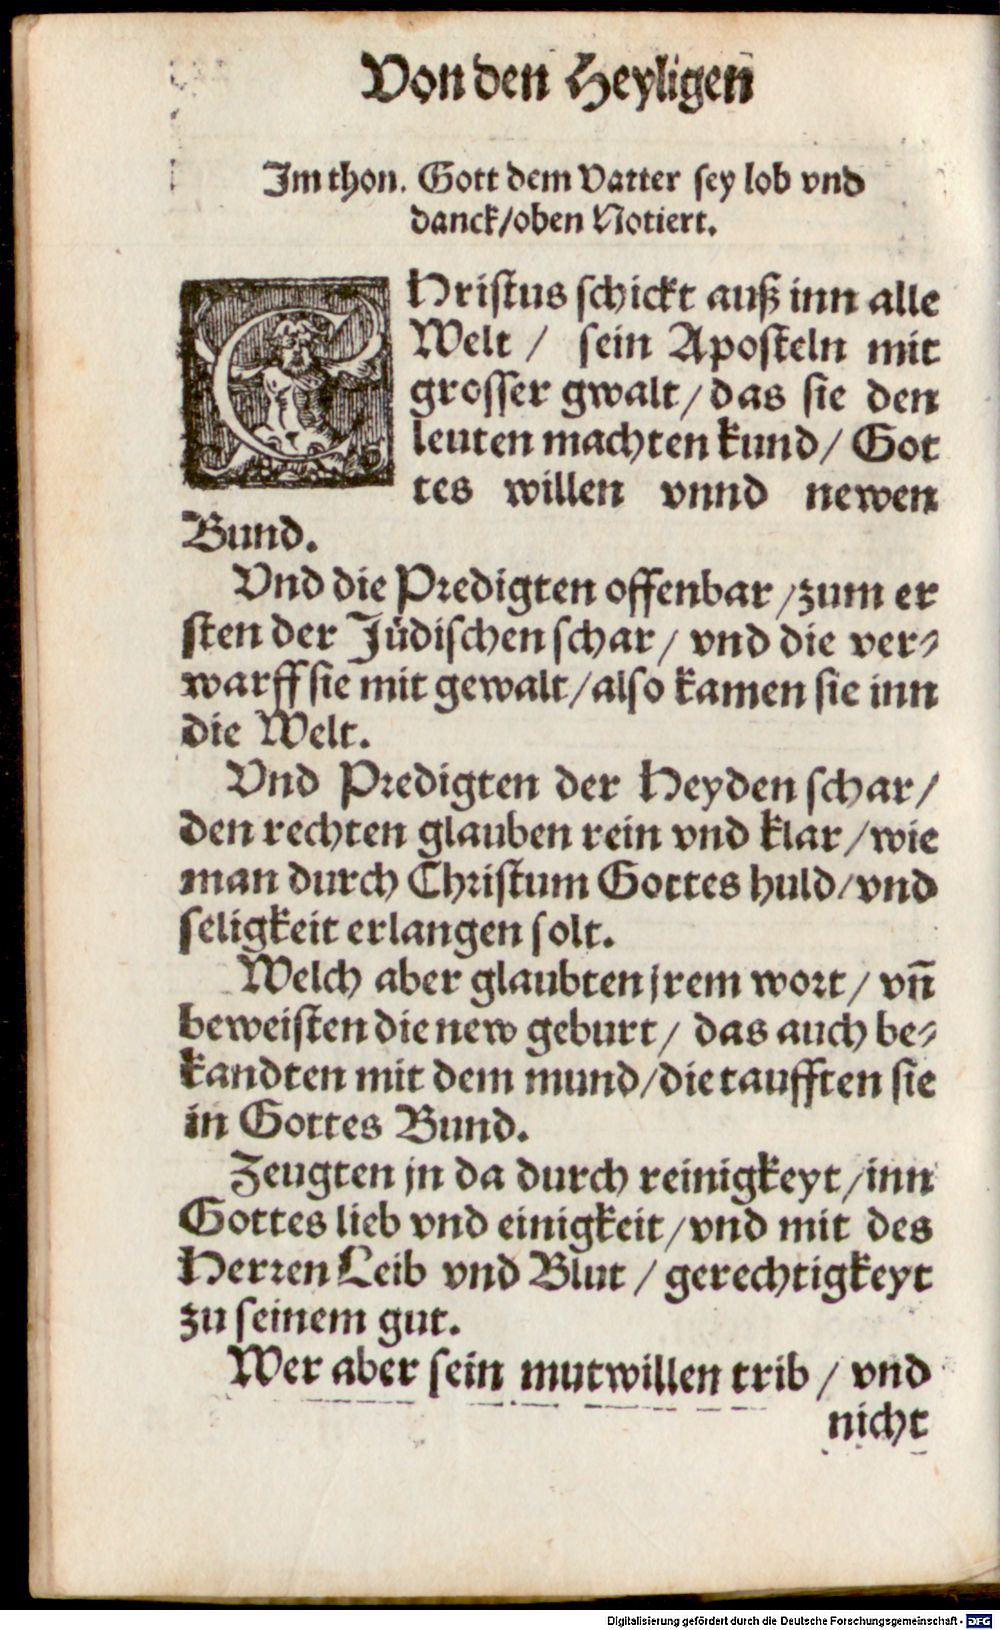 Von den Heyligen
Im thon. Gott dem Vatter sey lob vnd
danck/oben Notiert.
CHristus schickt auß inn alle
Welt / sein Aposteln mit
grosser gwalt/das sie den
leuten machten kund/ Got
tes willen vnnd newen
Bund.
Vnd die Predigten offenbar/zum er
sten der Jüdischen schar/ vnd die ver-
warff sie mit gewalt/also kamen sie inn
die Welt.
Vnd Predigten der Heyden schar/
den rechten glauben rein vnd klar/wie
man durch Christum Gottes huld/vnd
seligkeit erlangen solt.
Welch aber glaubten jrem wort/ vn̄
beweisten die new geburt/ das auch be-
kandten mit dem mund/die taufften sie
in Gottes Bund.
Zeugten jn da durch reinigkeyt/inn
Gottes lieb vnd einigkeit/vnd mit des
Herren Leib vnd Blut / gerechtigkeyt
zu seinem gut.
Wer aber sein mutwillen trib / vnd
nicht
Digitalisierung gefördert durch die Deutsche Forschungsgemeinschaft - DFG